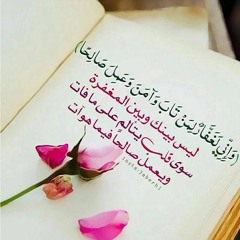 (وَإِنِّي لَغَفَّارٌ لِمَنْ تَابَ وَآمَنَ وَعَمِلَ صَالِحًا)
ليس بينك وبين المغفرة
سوى قلب يتألم على ما فات
ويعمل صالحاً فيما هو آت